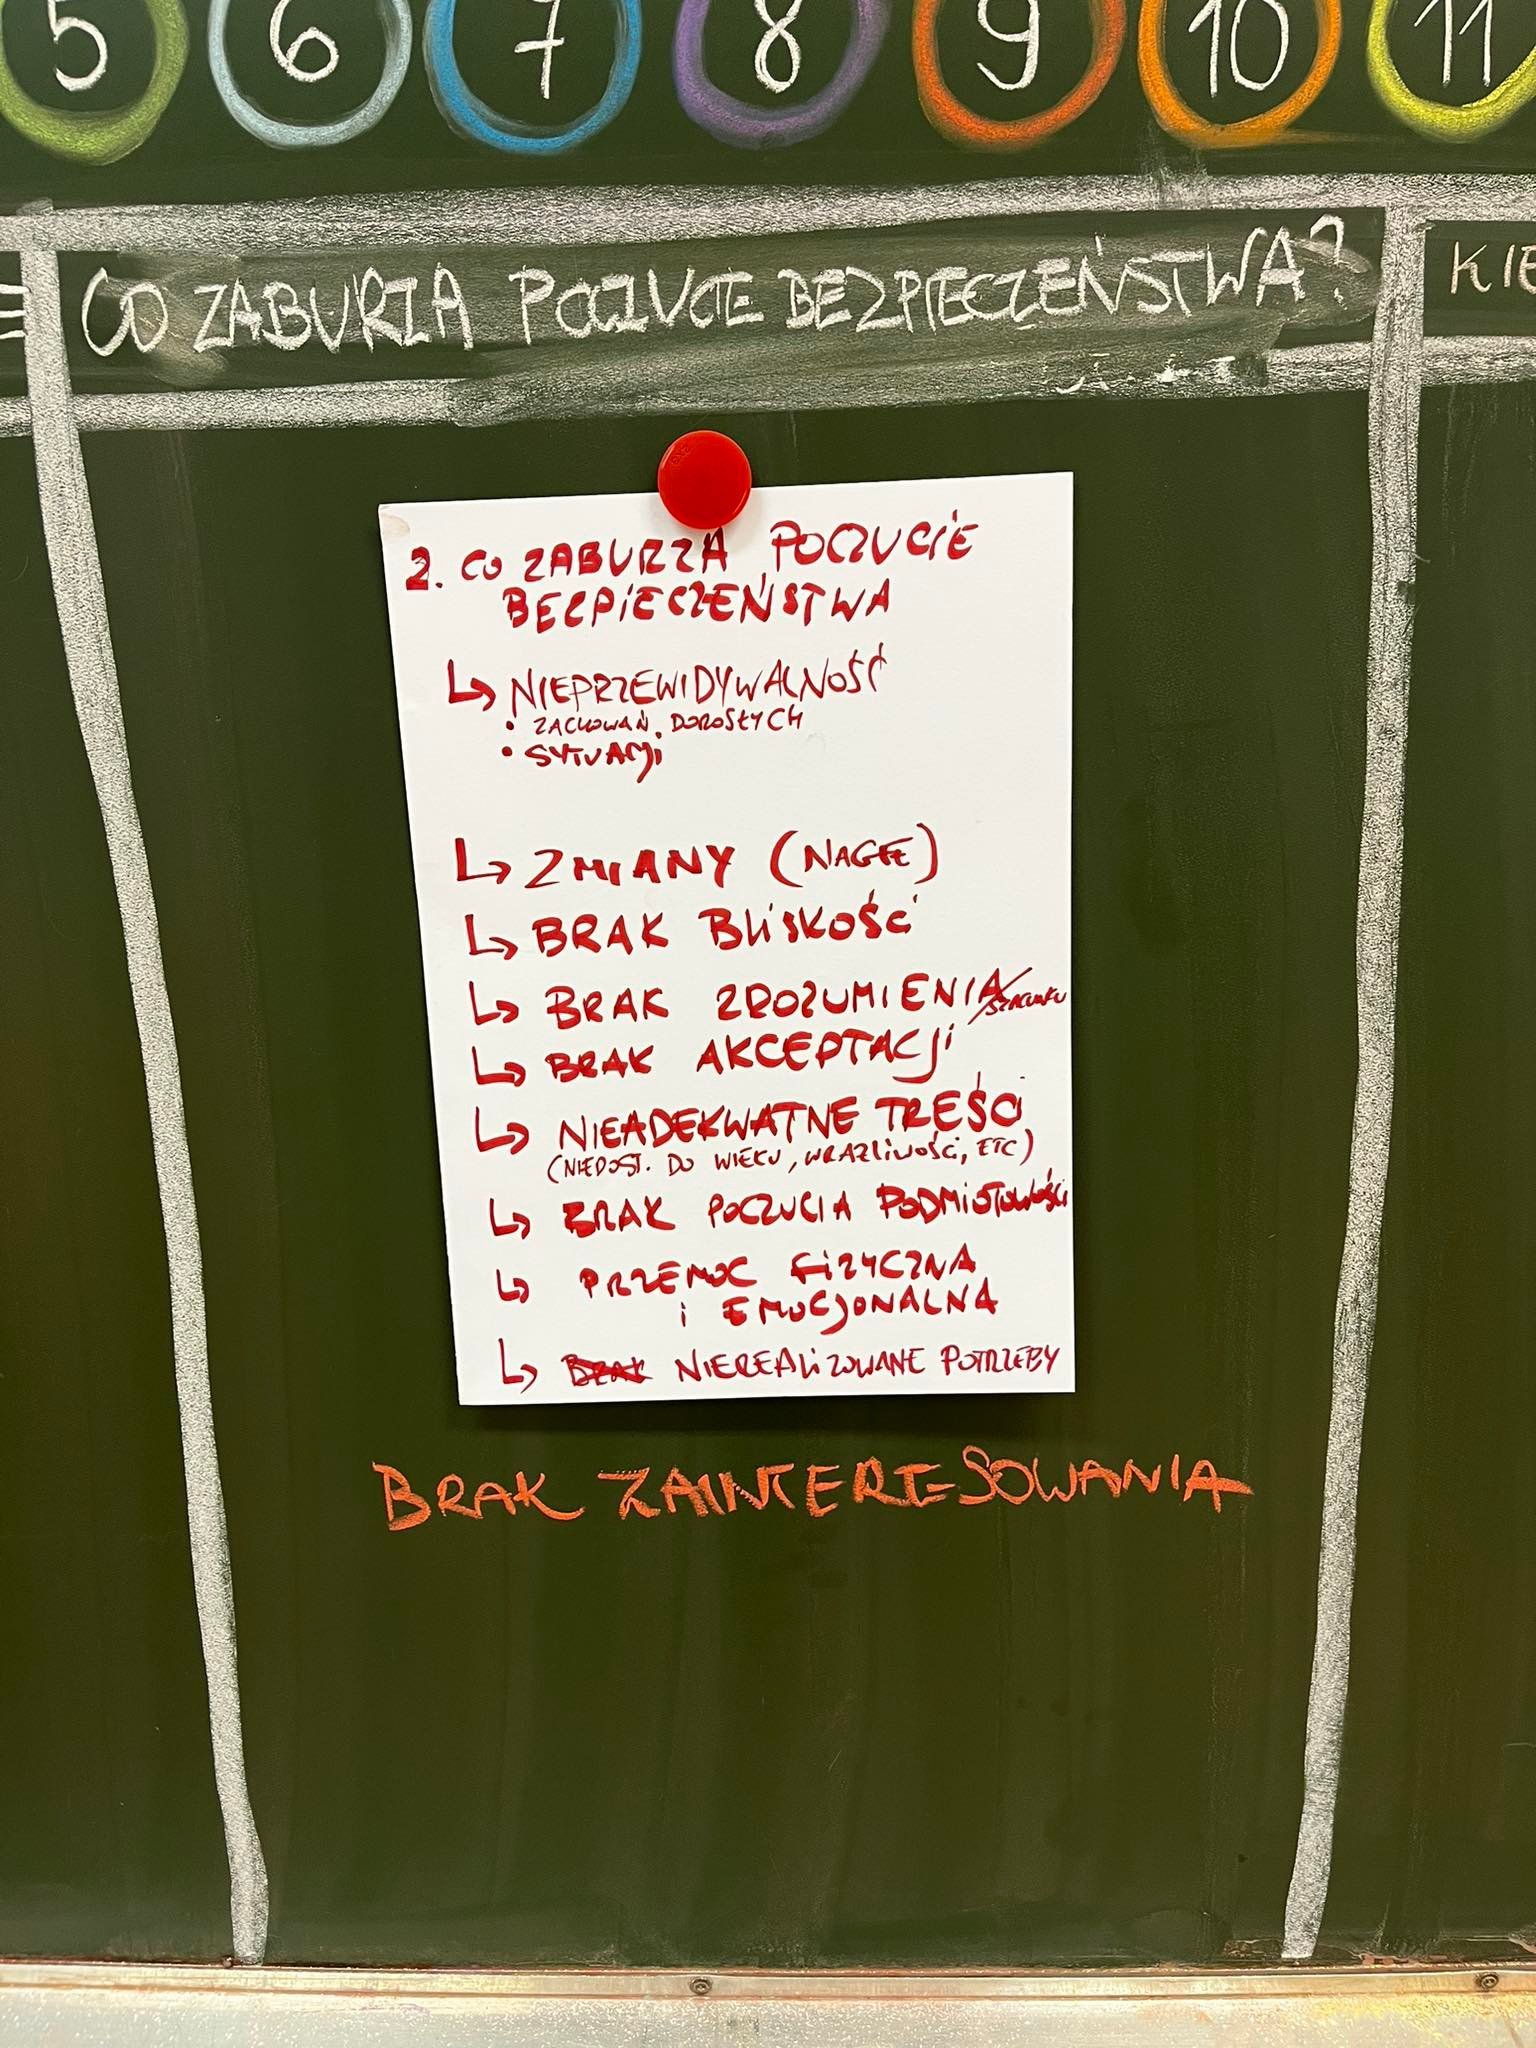 5 6 7 8 9 10 11
CO ZABURZA POCZUCIE BEZPIECZEŃSTWA?
KIE
2. CO ZABURZA POCZUCIE
BEZPIECZEŃSTWA
↳ NIEPRZEWIDYWALNOŚĆ
• ZACHOWAŃ DOROSŁYCH
• SYTUACJI
↳ ZMIANY (NAGŁE)
↳ BRAK BLISKOŚCI
↳ BRAK ZROZUMIENIA/SZACUNKU
↳ BRAK AKCEPTACJI
↳ NIEADEKWATNE TREŚCI
(NIEDOST. DO WIEKU, WRAŻLIWOŚCI, ETC)
↳ BRAK POCZUCIA PODMIOTOWOŚCI
↳ PRZEMOC FIZYCZNA
i EMOCJONALNA
↳ BRAK NIEREALIZOWANE POTRZEBY
BRAK ZAINTERESOWANIA